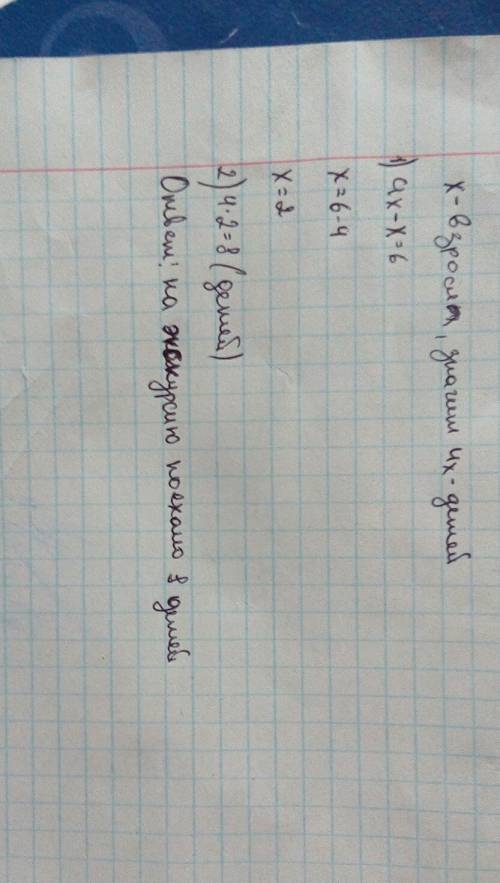 x - взрослых, значит 4x - детей
1) 4x - x = 6
x = 6 - 4
x = 2
2) 4 · 2 = 8 (детей)
Ответ: на экскурсию поехало 8 детей